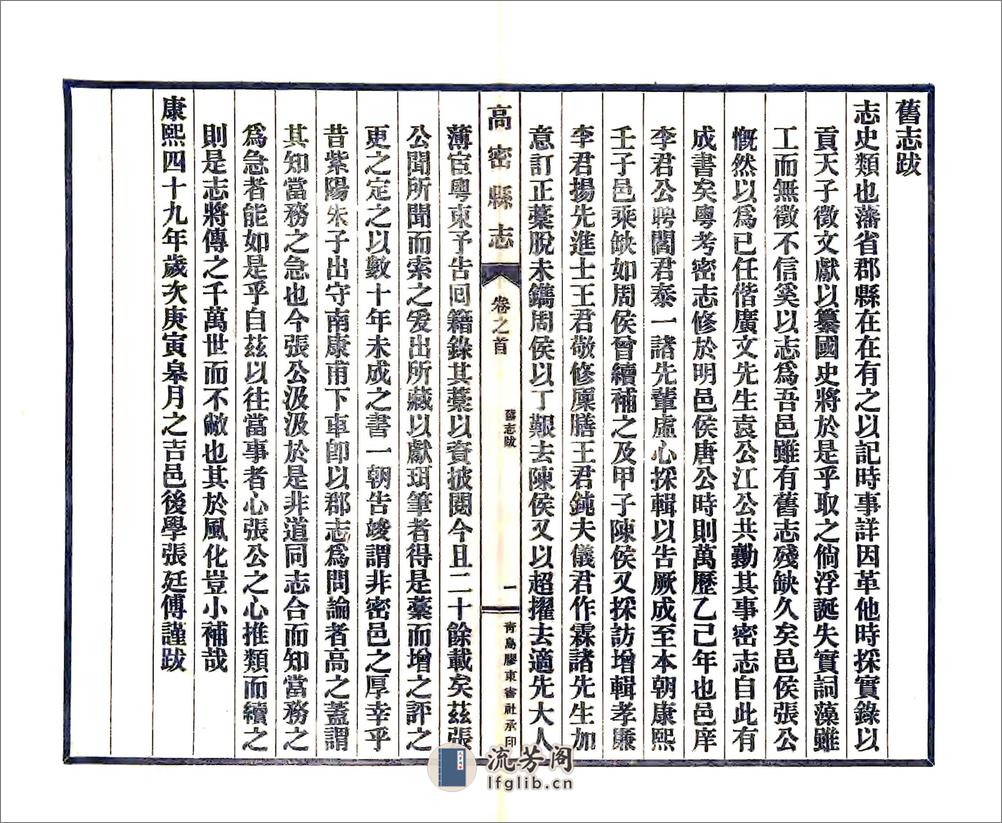 舊志跋
志史類也藩省郡縣在在有之以記時事詳因革他時採實錄以
貢天子徵文獻以纂國史將於是乎取之倘浮誕失實詞藻雖
工而無徵不信奚以志為吾邑雖有舊志殘缺久矣邑侯張公
慨然以為已任偕廣文先生袁公江公共勷其事密志自此有
成書矣粵考密志修於明邑侯唐公時則萬歷乙己年也邑庠
李君公聘閻君泰一諸先輩虛心採輯以告厥成至本朝康熙
壬子邑乘缺如周侯曾續補之及甲子陳侯又採訪增輯孝廉
李君揚先進士王君敬修廩膳王君鈍夫儀君作霖諸先生加
意訂正藁脫未鐫周侯以丁艱去陳侯又以超擢去適先大人
高密縣志 卷之首 舊志跋 一 青島膠東書社承印
薄宦粵東予告回籍錄其藁以資披閱今且二十餘載矣茲張
公聞所聞而索之爰出所藏以獻珥筆者得是藁而增之評之
更之定之以數十年未成之書一朝告竣謂非密邑之厚幸乎
昔紫陽朱子出守南康甫下車卽以郡志為問論者高之蓋謂
其知當務之急也今張公汲汲於是非道同志合而知當務之
為急者能如是乎自茲以往當事者心張公之心推類而續之
則是志將傳之千萬世而不敝也其於風化豈小補哉
康熙四十九年歲次庚寅皋月之吉邑後學張廷傅謹跋
流芳阁
lfglib.cn